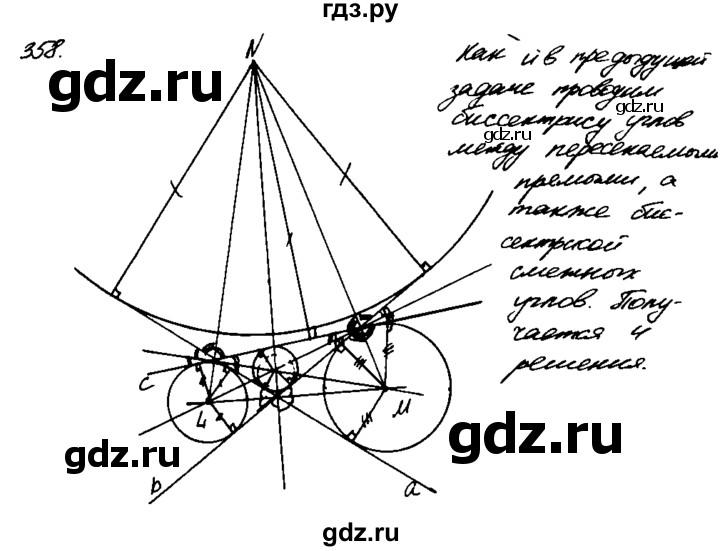 гдз.ру
358.
N
gdz.ru
Как и в предыдущей
задаче проводим
gdz.ru
биссектрису углов
gdz.ru
между пересекаемыми
прямыми, а
также бис-
сектрисой
смежных
углов. Полу-
чается 4
решения.
c
L
M
b
a
gdz.ru
gdz.ru
gdz.ru